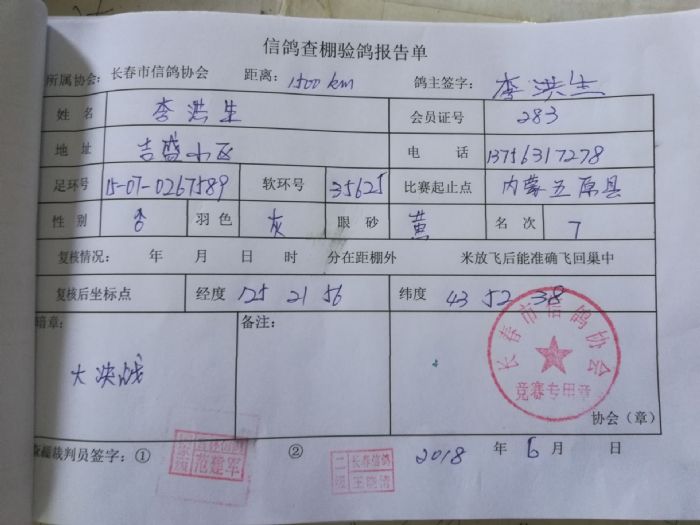 信鸽查棚验鸽报告单
所属协会: 长春市信鸽协会 距离: 1500 km 鸽主签字: 李洪生
姓 名 李洪生 会员证号 283
地 址 吉盛小区 电 话 13756317278
足环号 15-07-0267589 软环号 35625 比赛起止点 内蒙五原县
性 别 羽 色 灰 眼 砂 黄 名 次 7
复核情况: 年 月 日 时 分在距棚外 米放飞后能准确飞回巢中
复核后坐标点 经度 125 21 56 纬度 43 52 38
暗章: 备注:
大决战
长春市信鸽协会
竞赛专用章
协会（章）
裁判员签字: ① 范建军 ② 二级 长春信鸽 2018 年 6 月 日